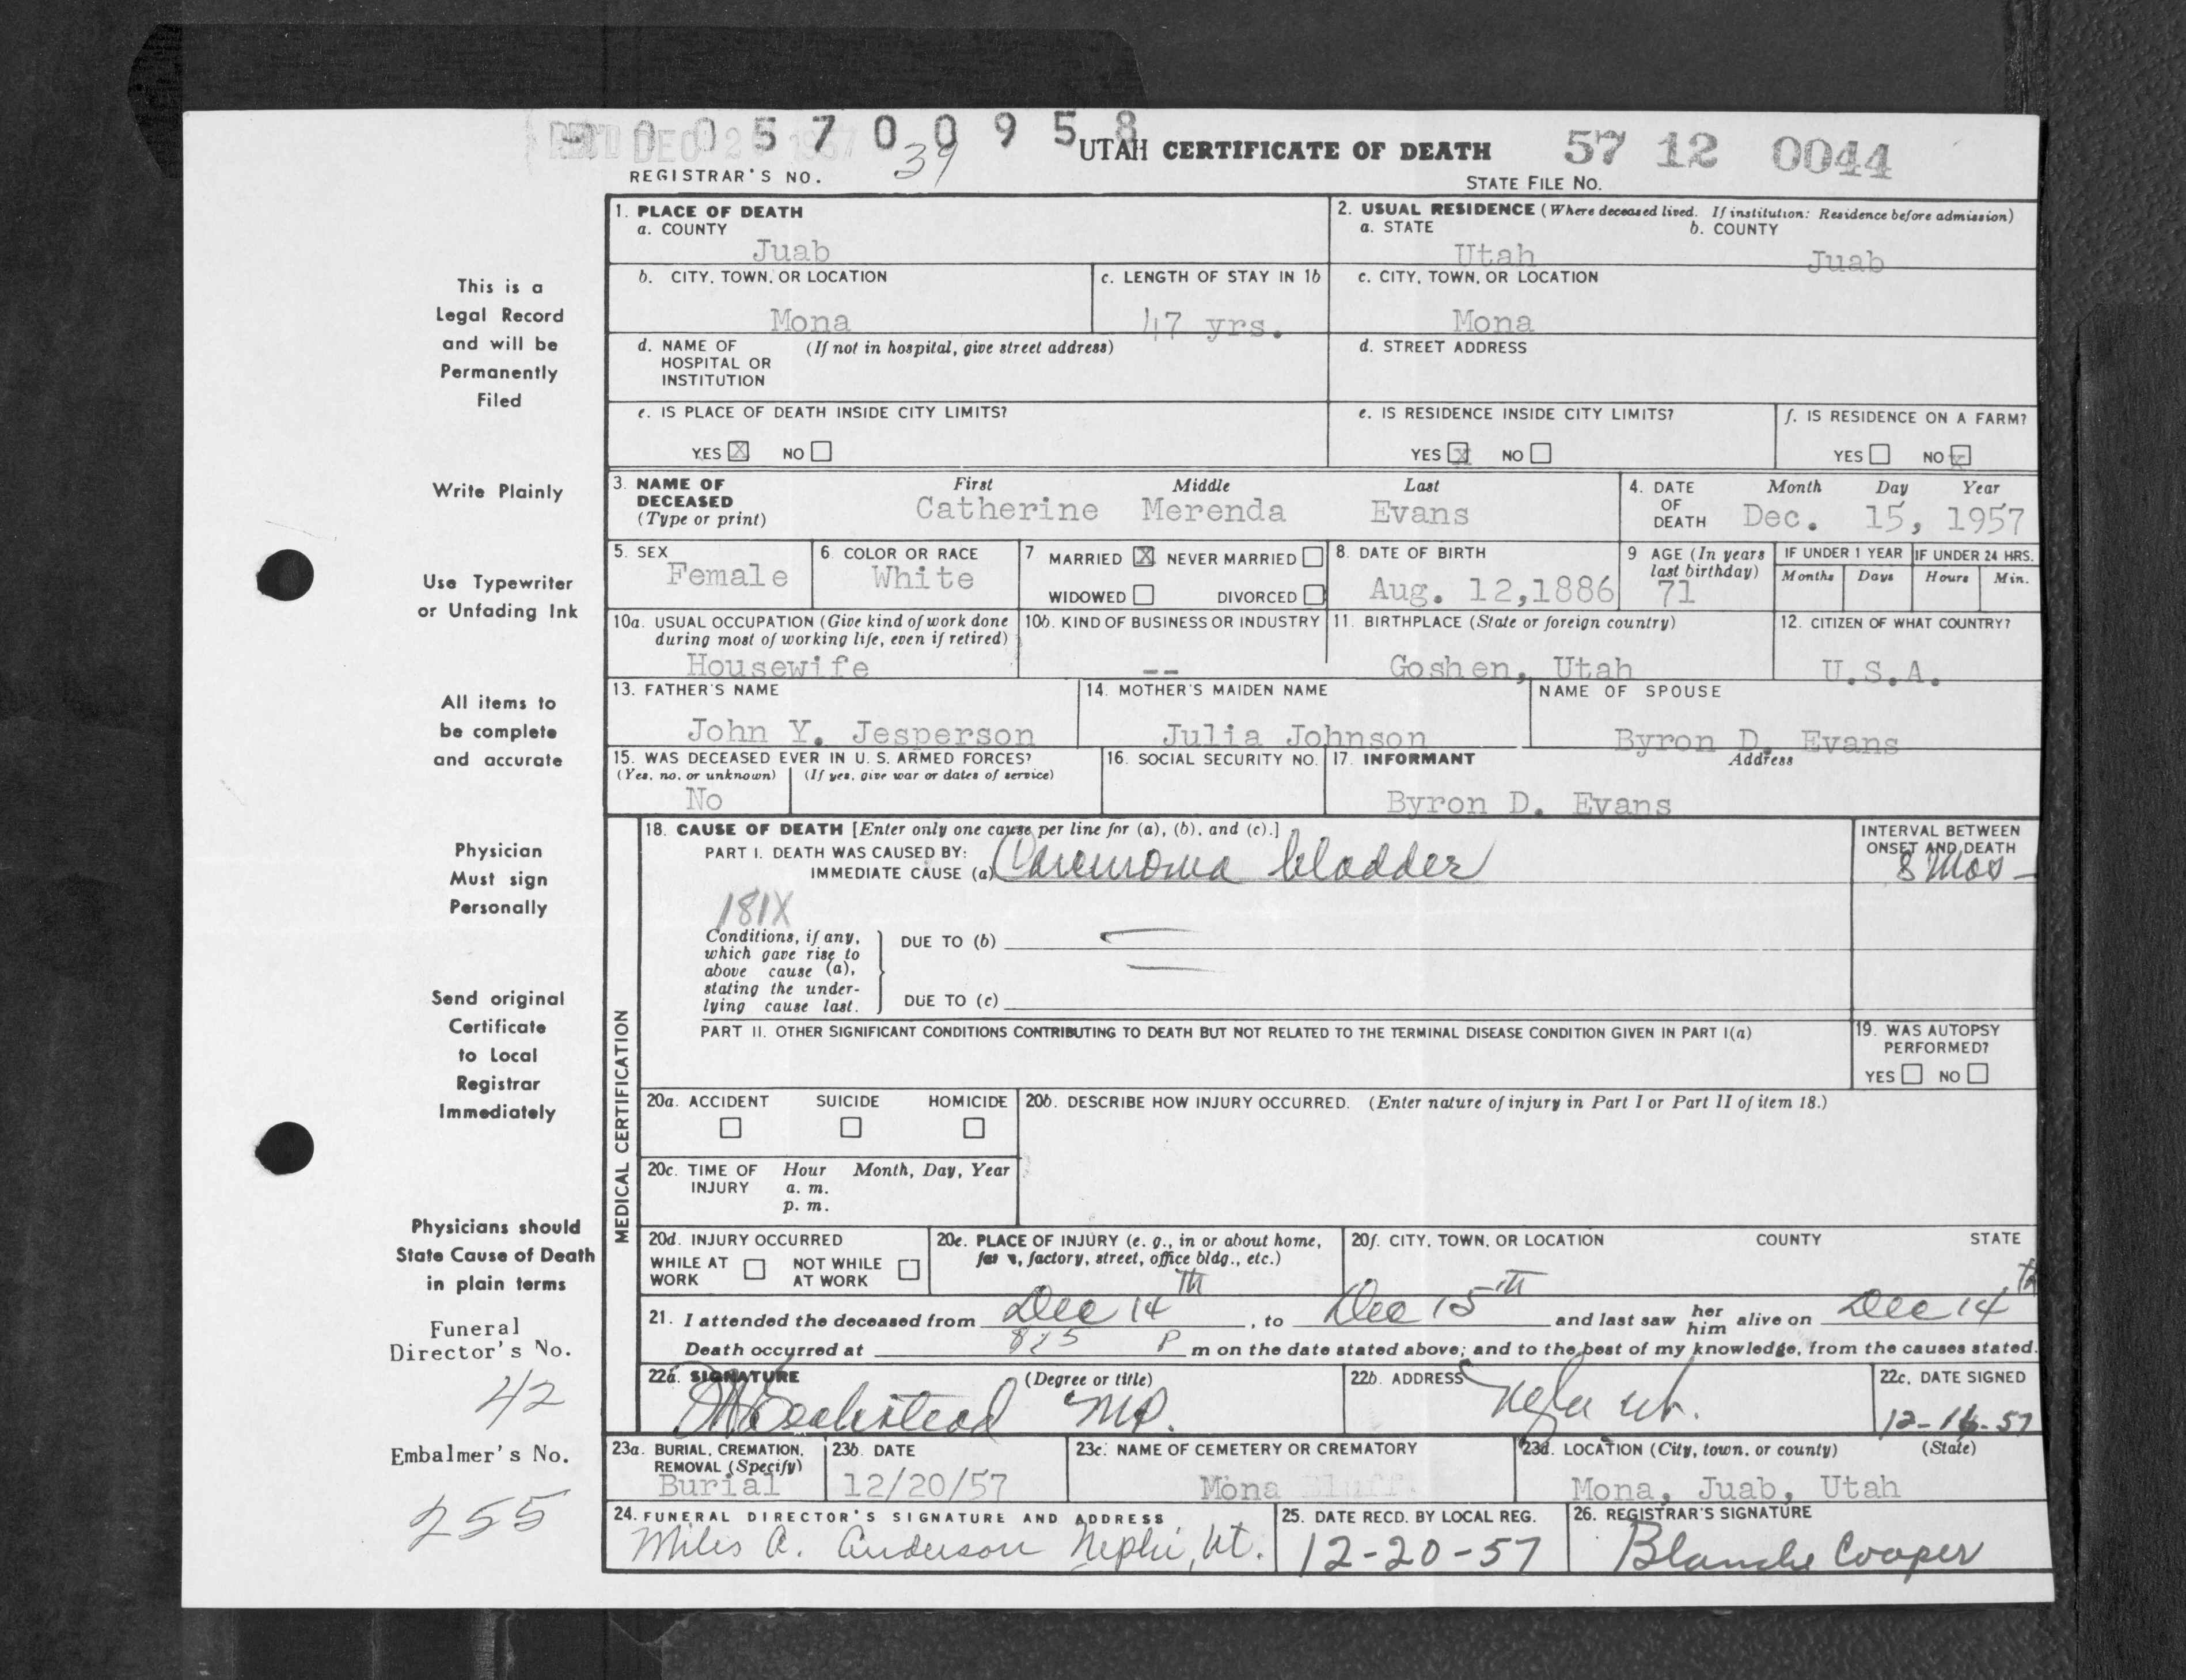 0 0 5 7 0 0 9 5 8
REC'D DEC 2 1957
39
UTAH CERTIFICATE OF DEATH
57 12 0044
REGISTRAR'S NO.
STATE FILE NO.
This is a
Legal Record
and will be
Permanently
Filed
Write Plainly
Use Typewriter
or Unfading Ink
All items to
be complete
and accurate
Physician
Must sign
Personally
Send original
Certificate
to Local
Registrar
Immediately
Physicians should
State Cause of Death
in plain terms
Funeral
Director's No.
42
Embalmer's No.
255
1. PLACE OF DEATH
a. COUNTY
Juab
2. USUAL RESIDENCE (Where deceased lived. If institution: Residence before admission)
a. STATE b. COUNTY
Utah Juab
b. CITY, TOWN, OR LOCATION
Mona
c. LENGTH OF STAY IN 1b
47 yrs.
c. CITY, TOWN, OR LOCATION
Mona
d. NAME OF (If not in hospital, give street address)
HOSPITAL OR
INSTITUTION
d. STREET ADDRESS
e. IS PLACE OF DEATH INSIDE CITY LIMITS?
YES X NO
e. IS RESIDENCE INSIDE CITY LIMITS?
YES X NO
f. IS RESIDENCE ON A FARM?
YES NO X
3. NAME OF First Middle Last
DECEASED
(Type or print)
Catherine Merenda Evans
4. DATE Month Day Year
OF
DEATH Dec. 15, 1957
5. SEX
Female
6. COLOR OR RACE
White
7 MARRIED X NEVER MARRIED
WIDOWED DIVORCED
8. DATE OF BIRTH
Aug. 12,1886
9 AGE (In years
last birthday)
71
IF UNDER 1 YEAR IF UNDER 24 HRS.
Months Days Hours Min.
10a. USUAL OCCUPATION (Give kind of work done
during most of working life, even if retired)
Housewife
10b. KIND OF BUSINESS OR INDUSTRY
--
11. BIRTHPLACE (State or foreign country)
Goshen, Utah
12. CITIZEN OF WHAT COUNTRY?
U.S.A.
13. FATHER'S NAME
John Y. Jesperson
14. MOTHER'S MAIDEN NAME
Julia Johnson
NAME OF SPOUSE
Byron D. Evans
15. WAS DECEASED EVER IN U. S. ARMED FORCES?
(Yes, no, or unknown) (If yes, give war or dates of service)
No
16. SOCIAL SECURITY NO.
17. INFORMANT Address
Byron D. Evans
MEDICAL CERTIFICATION
18. CAUSE OF DEATH [Enter only one cause per line for (a), (b), and (c).]
PART I. DEATH WAS CAUSED BY:
IMMEDIATE CAUSE (a) Carcinoma bladder
INTERVAL BETWEEN
ONSET AND DEATH
8 Mos -
181X
Conditions, if any,
which gave rise to
above cause (a),
stating the under-
lying cause last.
DUE TO (b)
DUE TO (c)
PART II. OTHER SIGNIFICANT CONDITIONS CONTRIBUTING TO DEATH BUT NOT RELATED TO THE TERMINAL DISEASE CONDITION GIVEN IN PART I(a)
19. WAS AUTOPSY
PERFORMED?
YES NO
20a. ACCIDENT SUICIDE HOMICIDE
20b. DESCRIBE HOW INJURY OCCURRED. (Enter nature of injury in Part I or Part II of item 18.)
20c. TIME OF Hour Month, Day, Year
INJURY a. m.
p. m.
20d. INJURY OCCURRED
WHILE AT WORK NOT WHILE AT WORK
20e. PLACE OF INJURY (e. g., in or about home,
factory, street, office bldg., etc.)
20f. CITY, TOWN, OR LOCATION COUNTY STATE
21. I attended the deceased from Dec 14th, to Dec 15th and last saw her him alive on Dec 14th
Death occurred at 825 P m on the date stated above; and to the best of my knowledge, from the causes stated.
22a. SIGNATURE (Degree or title)
MD.
22b. ADDRESS
22c. DATE SIGNED
12-16-57
23a. BURIAL, CREMATION,
REMOVAL (Specify)
Burial
23b. DATE
12/20/57
23c. NAME OF CEMETERY OR CREMATORY
Mona Bluff.
23d. LOCATION (City, town, or county) (State)
Mona, Juab, Utah
24. FUNERAL DIRECTOR'S SIGNATURE AND ADDRESS
Miles A. Anderson Nephi, Ut.
25. DATE RECD. BY LOCAL REG.
12-20-57
26. REGISTRAR'S SIGNATURE
Blanche Cooper